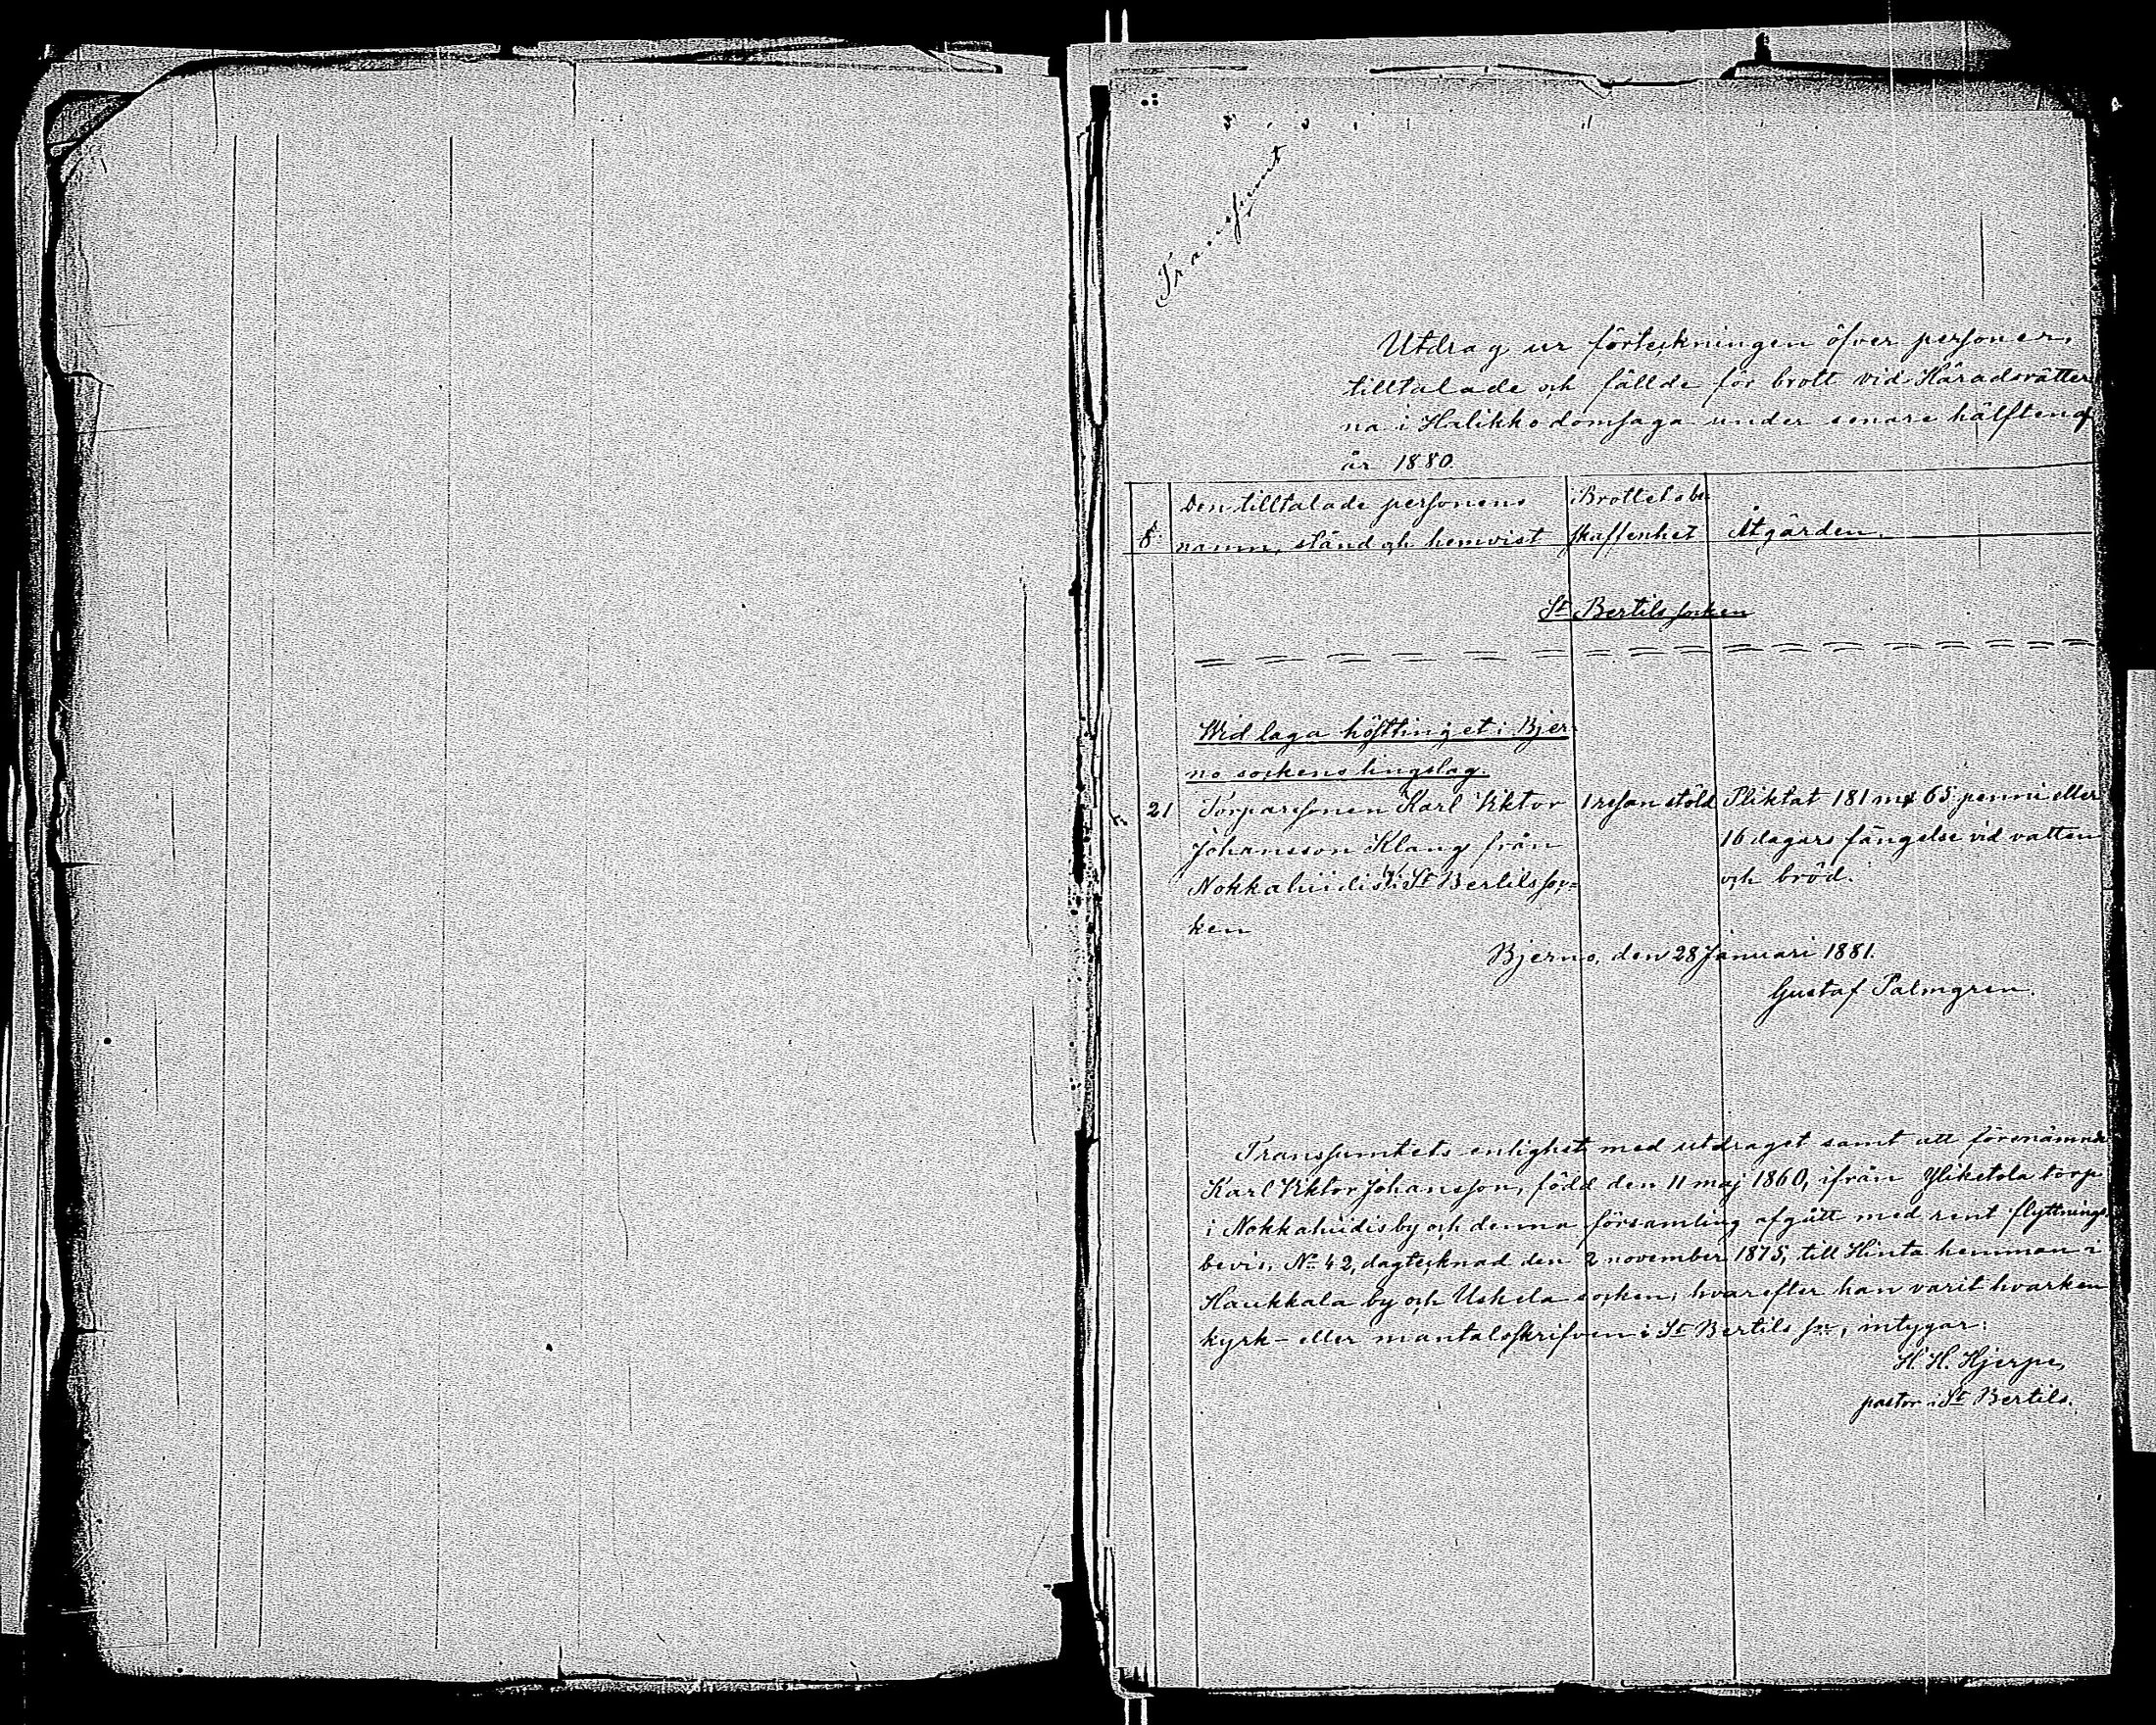 Transsumt
Utdrag ur förteckningen öfver personer,
tilltalade och fällde för brott vid Häradsrätter
na i Halikko domsaga under senare hälften af
år 1880.
Den tilltalade personens
namn, stånd och hemvist
Brottets be-
skaffenhet
Åtgärden.
St Bertils socken
Wid laga hösttinget i Bjer-
no sockens tingslag.
21 Torparesonen Karl Viktor 1 resan stöld Pliktat 181 mk 65 penni eller
Johansson Klang från 16 dagars fängelse vid vatten
Nokkahiidis i St Bertils soc= och bröd.
ken
Bjerno, den 28 Januari 1881.
Gustaf Palmgren.
Transsumtets enlighet med utdraget samt att förenämnde
Karl Viktor Johansson, född den 11 maj 1860, ifrån Yliketola torp
i Nokkahiidis by och denna församling afgått med rent flyttnings-
bevis, No 42, dagtecknad den 2 november 1875, till Hinta hemman i
Haukkala by och Uskela socken, hvarefter han varit hvarken
kyrk- eller mantalsskrifven i St Bertils sn, intygar:
H. H. Hjerpe,
pastor i St Bertils.